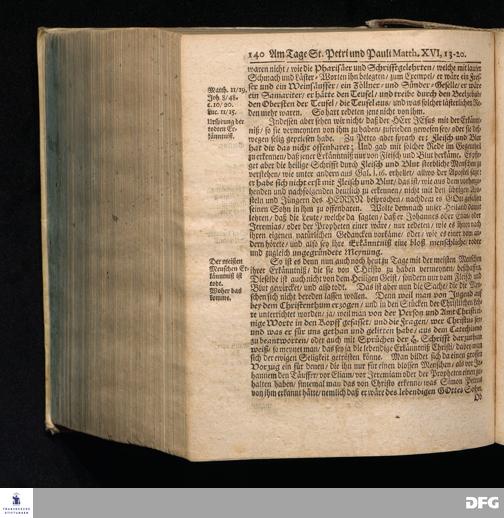 140 Am Tage St. Petri und Pauli Matth. XVI, 13-20.
waren nicht/ wie die Phariſäer und Schrifftgelehrten/ welche mit lauter
Schmach und Läſter-Worten ihn belegten/ zum Exempel/ er wäre ein Freſ-
ſer und ein Weinſäuffer/ ein Zöllner- und Sünder-Geſelle/ er wäre
ein Samariter/ er hätte den Teufel/ und treibe durch den Beelzebub/
den Oberſten der Teufel/ die Teufel aus/ und was ſolcher läſterlichen Re-
den mehr waren. So hart redeten jene nicht von ihm.
Matth. 11/19.
Joh. 8/48.
c. 10/20.
Luc. 11/15.
Urſprung der
todten Er-
känntniß.
Indeſſen aber ſehen wir nicht/ daß der HErr JEſus mit der Erkänt-
niß/ ſo ſie vermeynten von ihm zu haben/ zufrieden geweſen ſey/ oder ſie deß-
wegen ſelig geprieſen habe. Zu Petro aber ſprach er: Fleiſch und Blut
hat dir das nicht offenbaret; Und gab mit ſolcher Rede im Gegentheil
zu erkennen/ daß jener Erkäntniß nur von Fleiſch und Blut herkäme.
get aber die heilige Schrifft durch Fleiſch und Blut ſterbliche Menſchen zu
verſtehen/ wie unter andern aus Gal. 1. 16. erhellet/ allwo der Apoſtel ſaget
er habe ſich nicht erſt mit Fleiſch und Blut/ das iſt/
henden und nachfolgenden deutlich zu erkennen/ nicht mit den übrigen Apo-
ſteln und Jüngern des HERRN beſprochen/ nachdem es GOtt gefallen
ſeinen Sohn in ihm zu offenbaren. Wolte demnach unſer Heiland damit
lehren/ daß die Leute/ welche da ſagten/ daß er Johannes oder Elias/ oder
Jeremias/ oder der Propheten einer wäre/ nur redeten/ wie es ihnen nach
ihren eigenen natürlichen Gedancken vorkäme/ oder/ wie es einer vom an-
dern hörete/ und alſo ſey ihre Erkänntniß eine bloß menſchliche/ todte
und zugleich ungegründete Meynung.
Der meiſten
Menſchen Er-
känntniß iſt
todt.
Woher das
komme.
So iſt es denn nun auch noch heut zu Tage mit der meiſten Menſchen
ihrer Erkäntniß/ die ſie von Chriſto zu haben vermeynen/ beſchaffen.
Dieſelbe iſt auch nicht von dem Heiligen Geiſt/ ſondern nur vom Fleiſch und
Blut gewürcket/ und alſo todt. Das iſt aber nun die Sache/ die die Men-
ſchen ſich nicht bereden laſſen wollen. Denn weil man von Jugend auf
bey dem Chriſtenthum erzogen/ und in den Stücken der Chriſtlichen
re unterrichtet worden/ ja/ weil man von der Perſon und Amt Chriſti ei-
nige Worte in den Kopff gefaſſet/ und die Fragen/ wer Chriſtus ſey/
und was er für uns gethan und gelitten habe/ aus dem Catechiſmo
zu beantworten/ oder auch mit Sprüchen der H. Schrifft darzuthun
weiß/ ſo meynet man/ das ſey ja die lebendige Erkänntniß Chriſti/ dabey man
ſich der ewigen Seligkeit getröſten könne. Man bildet ſich da einen groſſen
Vorzug ein für denen/ die ihn nur für einen bloſſen Menſchen/ als vor Jo-
hannem den Täuffer/ vor Eliam/ vor Jeremiam oder der Propheten einen
halten haben/ ſintemal man das von Chriſto erkenne/ was Simon Petrus
von ihm erkannt hätte/ nemlich daß er wäre des lebendigen GOttes Sohn.
Ob
FRANCKESCHE
STIFTUNGEN
DFG